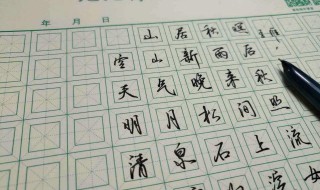 年 月 日
山居秋暝 王维
空山新雨后，
天气晚来秋
明月松间照
清泉石上流